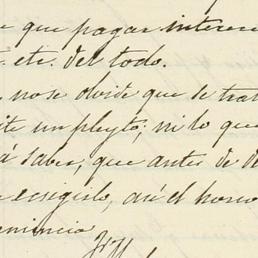 e que pagar interes
etc. del todo.
no se olvide que se trat
ite un pleyto; ni lo que
á saber, que antes de de
ecsigirlo, así el hono